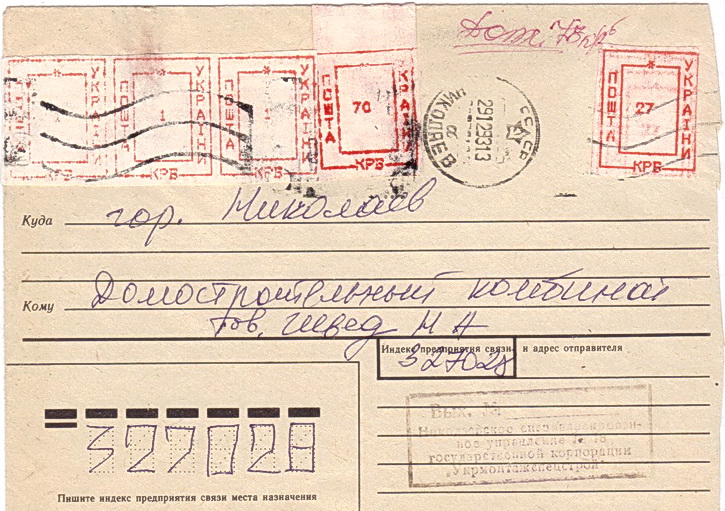 Доп. 73 крб
ПОШТА УКРАЇНИ * 1 КРБ
ПОШТА УКРАЇНИ * 1 КРБ
ПОШТА УКРАЇНИ * 1 КРБ
ПОШТА УКРАЇНИ 70 КРБ
НИКОЛАЕВ СССР 29129313
ПОШТА УКРАЇНИ 27 КРБ
Куда гор. Николаев
Кому Домостроительный комбинат
тов. Швед Н А
Индекс предприятия связи и адрес отправителя
327028
Вых. №
Николаевское специализирован-
ное управление № 18
государственной корпорации
"Укрмонтажспецстрой"
327028
Пишите индекс предприятия связи места назначения